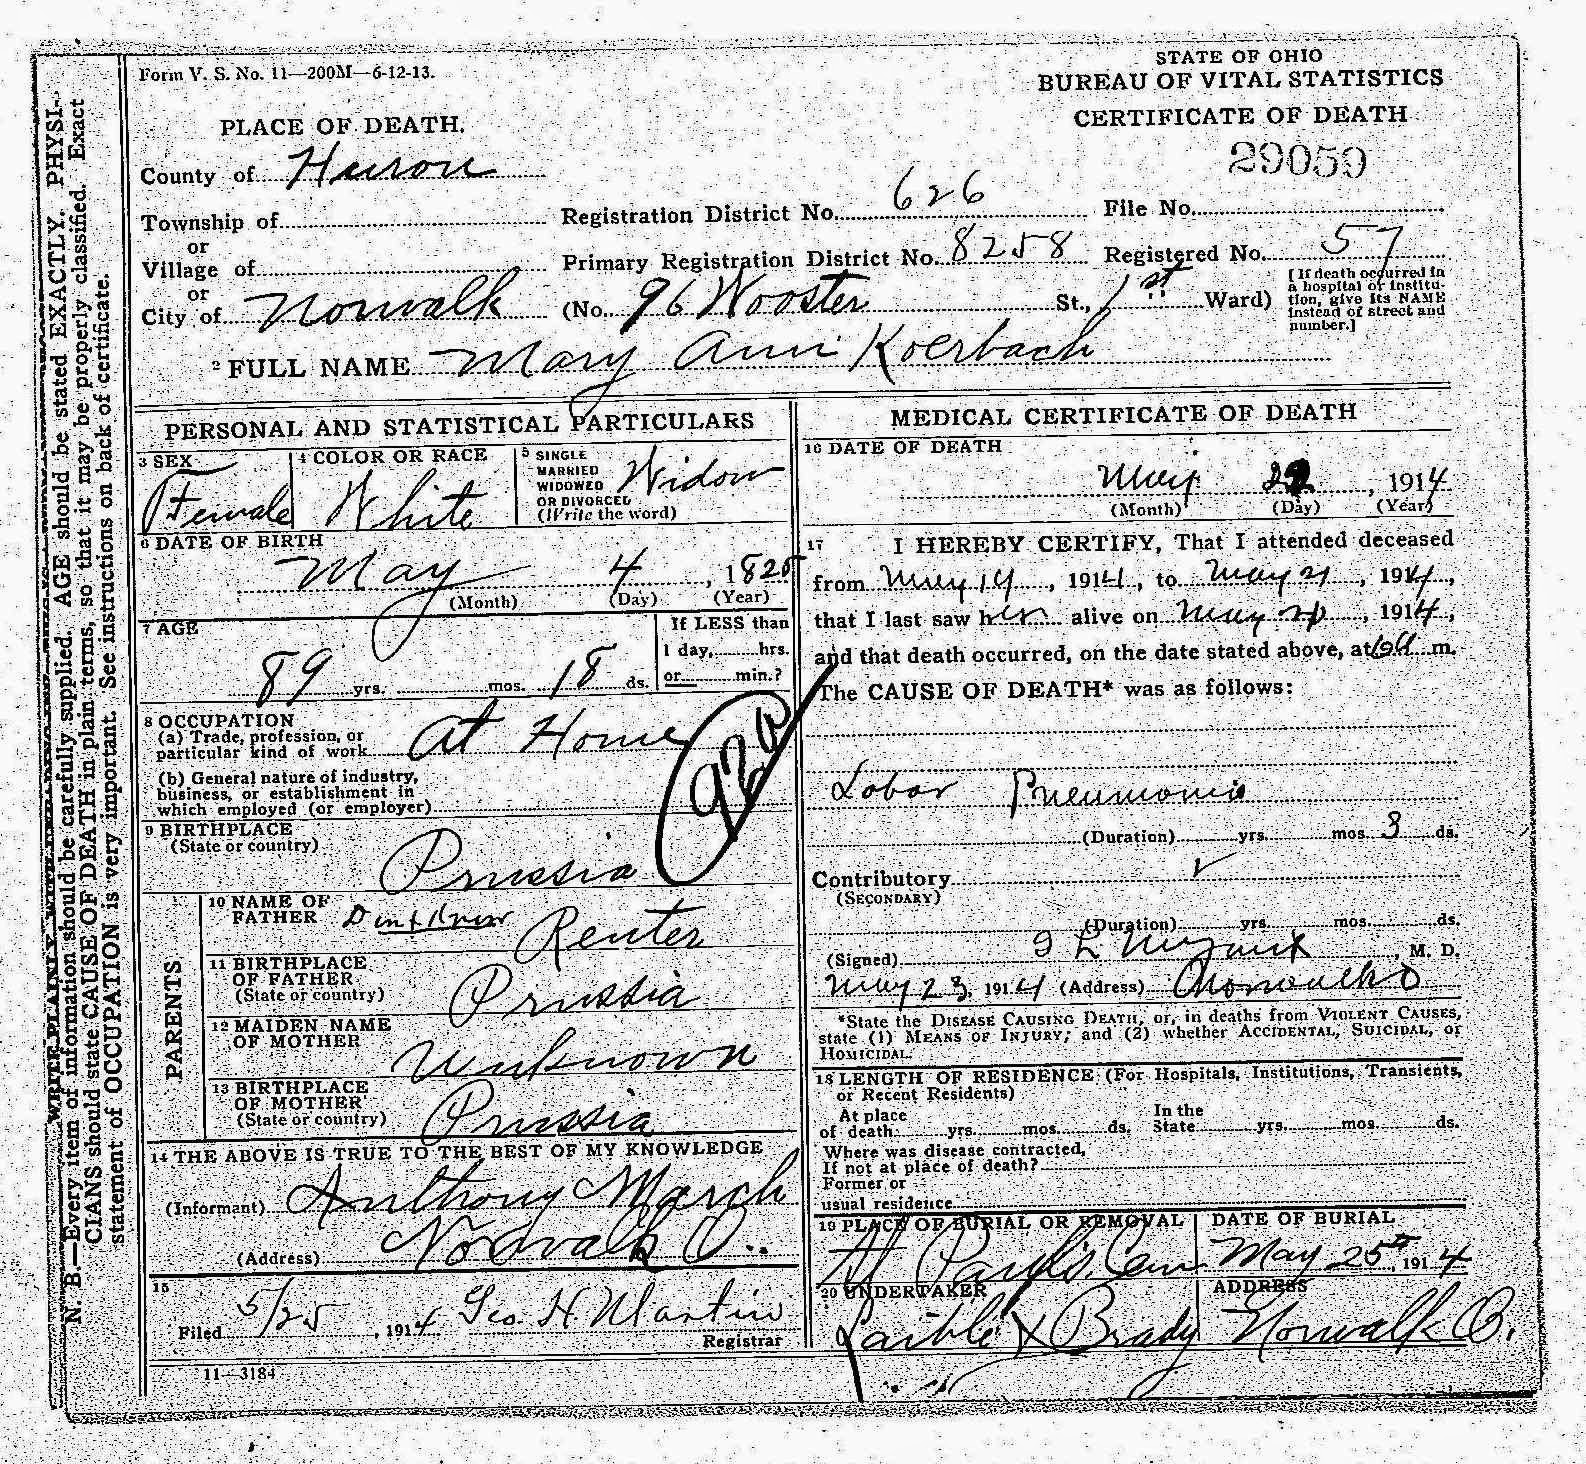 Form V. S. No. 11—200M—6-12-13.
STATE OF OHIO
BUREAU OF VITAL STATISTICS
CERTIFICATE OF DEATH
29059
PLACE OF DEATH.
County of Huron
Township of
or
Village of
or
City of Norwalk
Registration District No. 626
File No.
Primary Registration District No. 8258
Registered No. 57
(No. 96 Wooster St., 1st Ward)
[If death occurred in
a hospital or institu-
tion, give its NAME
instead of street and
number.]
2 FULL NAME Mary Ann Koerbach
PERSONAL AND STATISTICAL PARTICULARS
3 SEX
Female
4 COLOR OR RACE
White
5 SINGLE
MARRIED
WIDOWED
OR DIVORCED
(Write the word)
Widow
6 DATE OF BIRTH
May 4, 1825
(Month) (Day) (Year)
7 AGE
89 yrs. mos. 18 ds.
If LESS than
1 day, hrs.
or min.?
8 OCCUPATION
(a) Trade, profession, or
particular kind of work At Home
(b) General nature of industry,
business, or establishment in
which employed (or employer)
92a
9 BIRTHPLACE
(State or country)
Prussia
PARENTS
10 NAME OF
FATHER Dont Know Reuter
11 BIRTHPLACE
OF FATHER
(State or country)
Prussia
12 MAIDEN NAME
OF MOTHER
Unknown
13 BIRTHPLACE
OF MOTHER
(State or country)
Prussia
14 THE ABOVE IS TRUE TO THE BEST OF MY KNOWLEDGE
(Informant) Anthony March
(Address) Norwalk O.
15
Filed 5/25, 1914 Geo. H. Martin
Registrar
11—3184
MEDICAL CERTIFICATE OF DEATH
16 DATE OF DEATH
May 22, 1914
(Month) (Day) (Year)
17 I HEREBY CERTIFY, That I attended deceased
from May 19, 1914, to May 21, 1914,
that I last saw her alive on May 21, 1914,
and that death occurred, on the date stated above, at m.
The CAUSE OF DEATH* was as follows:
Lobar Pneumonia
(Duration) yrs. mos. 3 ds.
Contributory
(SECONDARY)
(Duration) yrs. mos. ds.
(Signed) , M. D.
May 23, 1914 (Address) Norwalk O
*State the DISEASE CAUSING DEATH, or, in deaths from VIOLENT CAUSES,
state (1) MEANS OF INJURY; and (2) whether ACCIDENTAL, SUICIDAL, or
HOMICIDAL.
18 LENGTH OF RESIDENCE (For Hospitals, Institutions, Transients,
or Recent Residents)
At place
of death yrs. mos. ds.
In the
State yrs. mos. ds.
Where was disease contracted,
If not at place of death?
Former or
usual residence
19 PLACE OF BURIAL OR REMOVAL
St Paul's Cem
DATE OF BURIAL
May 25th, 1914
20 UNDERTAKER
Laible & Brady
ADDRESS
Norwalk O.
N. B.—Every item of information should be carefully supplied. AGE should be stated EXACTLY. PHYSI-
CIANS should state CAUSE OF DEATH in plain terms, so that it may be properly classified. Exact
statement of OCCUPATION is very important. See instructions on back of certificate.